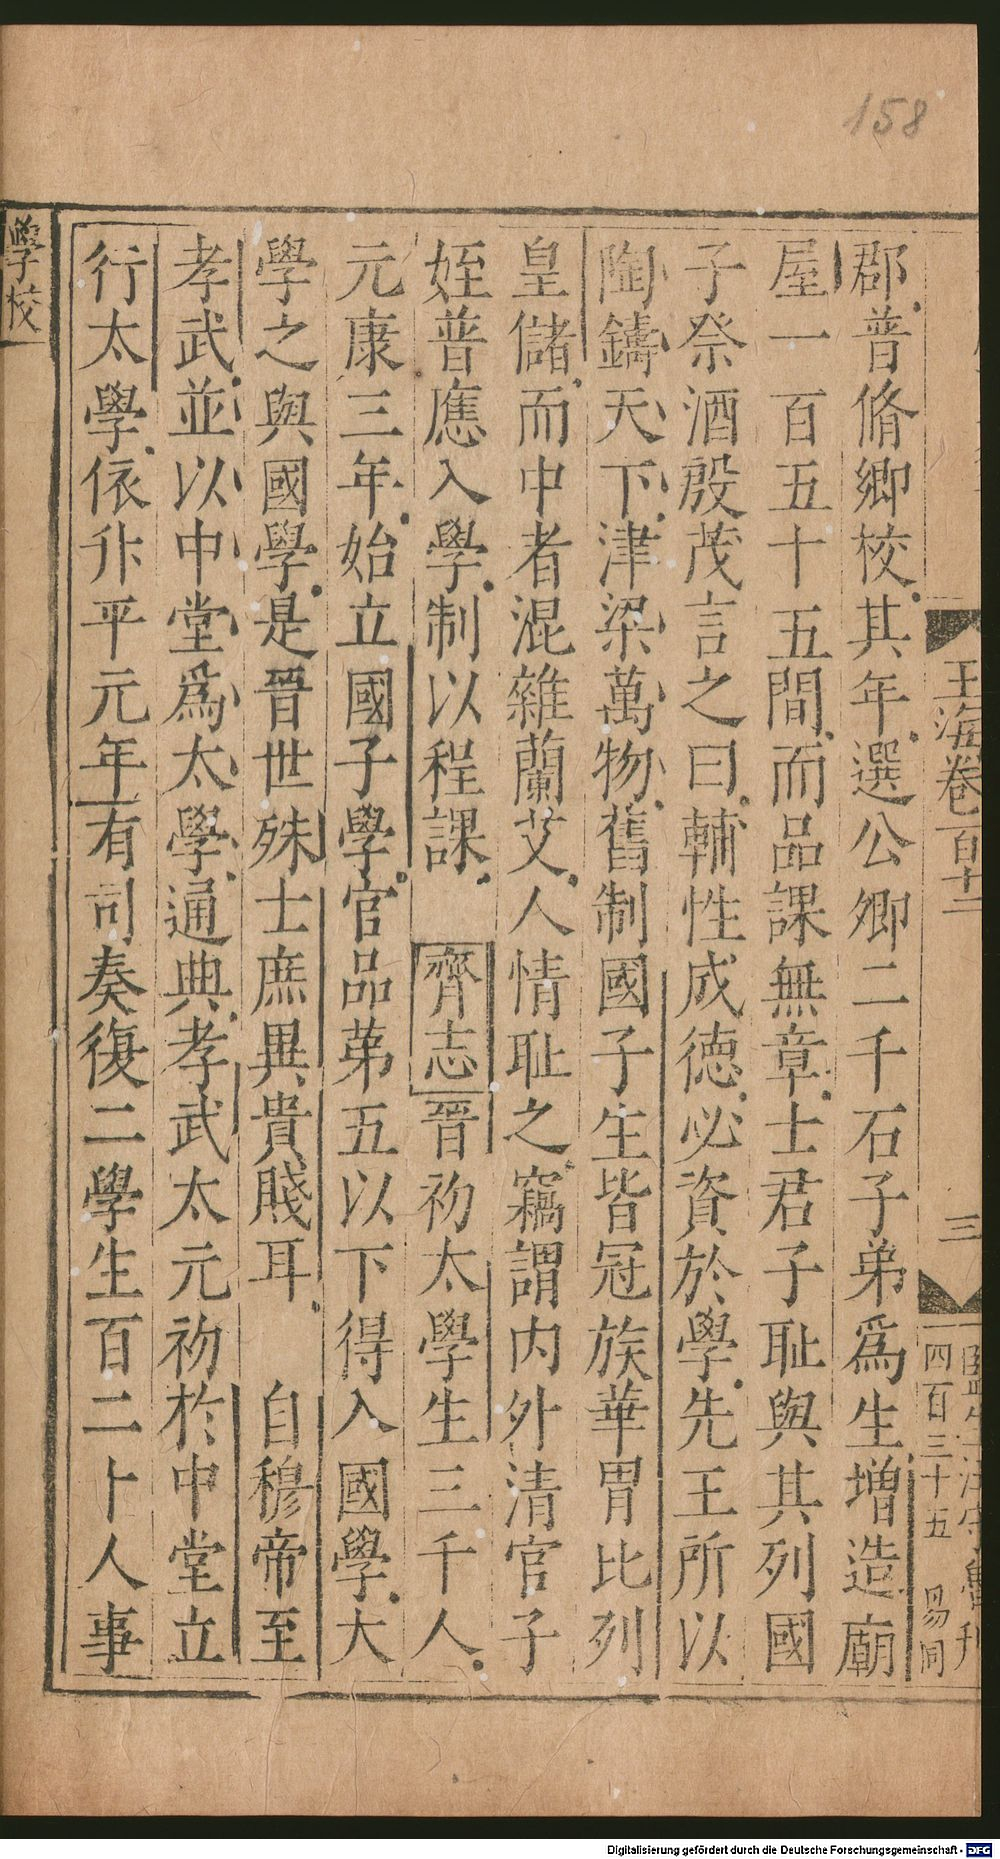 158
玉海卷百十二
三
四百三十五 易间
郡普脩鄉校其年選公卿二千石子弟爲生增造廟
屋一百五十五間而品課無章士君子恥與其列國
子祭酒殷茂言之曰輔性成德必資於學先王所以
陶鑄天下津梁萬物舊制國子生皆冠族華胄比列
皇儲而中者混雜蘭艾人情恥之竊謂内外清官子
姪普應入學制以程課 齊志晉初太學生三千人
元康三年始立國子學官品苐五以下得入國學大
學之與國學是晉世殊士庶異貴賤耳 自穆帝至
孝武並以中堂爲太學通典孝武太元初於中堂立
行太學依升平元年有司奏復二學生百二十人事
學校
Digitalisierung gefördert durch die Deutsche Forschungsgemeinschaft - DFG